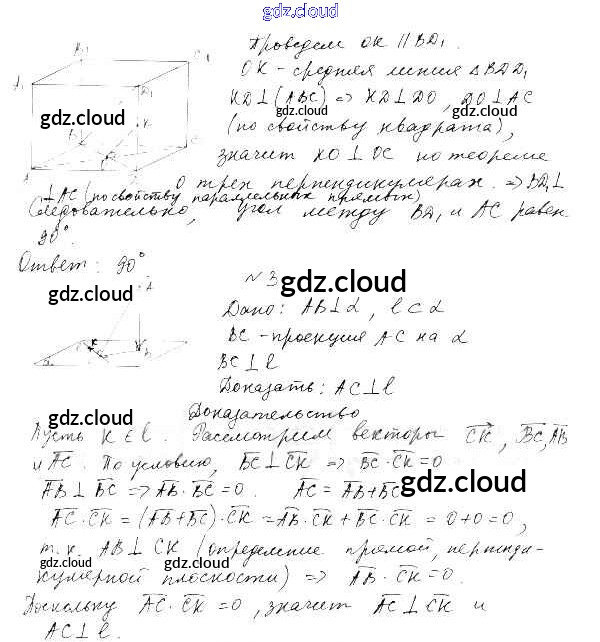 gdz.cloud
Проведем OK || BD₁.
OK - средняя линия △BDD₁
KD⊥(ABC) => KD⊥DO, DO⊥AC
gdz.cloud
gdz.cloud
(по свойству квадрата),
значит KO⊥OC по теореме
о трех перпендикулярах. => BD₁⊥
⊥AC (по свойству параллельных прямых)
Следовательно, угол между BD₁ и AC равен
90°.
Ответ: 90°
gdz.cloud
№3
gdz.cloud
Дано: AB⊥α, l⊂α
BC - проекция AC на α
BC⊥l
Доказать: AC⊥l
Доказательство
gdz.cloud
Пусть K∈l. Рассмотрим векторы C͞K͞, B͞C͞, A͞B͞
и A͞C͞. По условию, B͞C͞⊥C͞K͞ => B͞C͞·C͞K͞=0
A͞B͞⊥B͞C͞ => A͞B͞·B͞C͞=0. A͞C͞=A͞B͞+B͞C͞
gdz.cloud
A͞C͞·C͞K͞=(A͞B͞+B͞C͞)·C͞K͞=A͞B͞·C͞K͞+B͞C͞·C͞K͞=0+0=0,
т.к. AB⊥CK (определение прямой, перпенди-
gdz.cloud
gdz.cloud
кулярной плоскости) => A͞B͞·C͞K͞=0.
Поскольку A͞C͞·C͞K͞=0, значит A͞C͞⊥C͞K͞ и
AC⊥l.